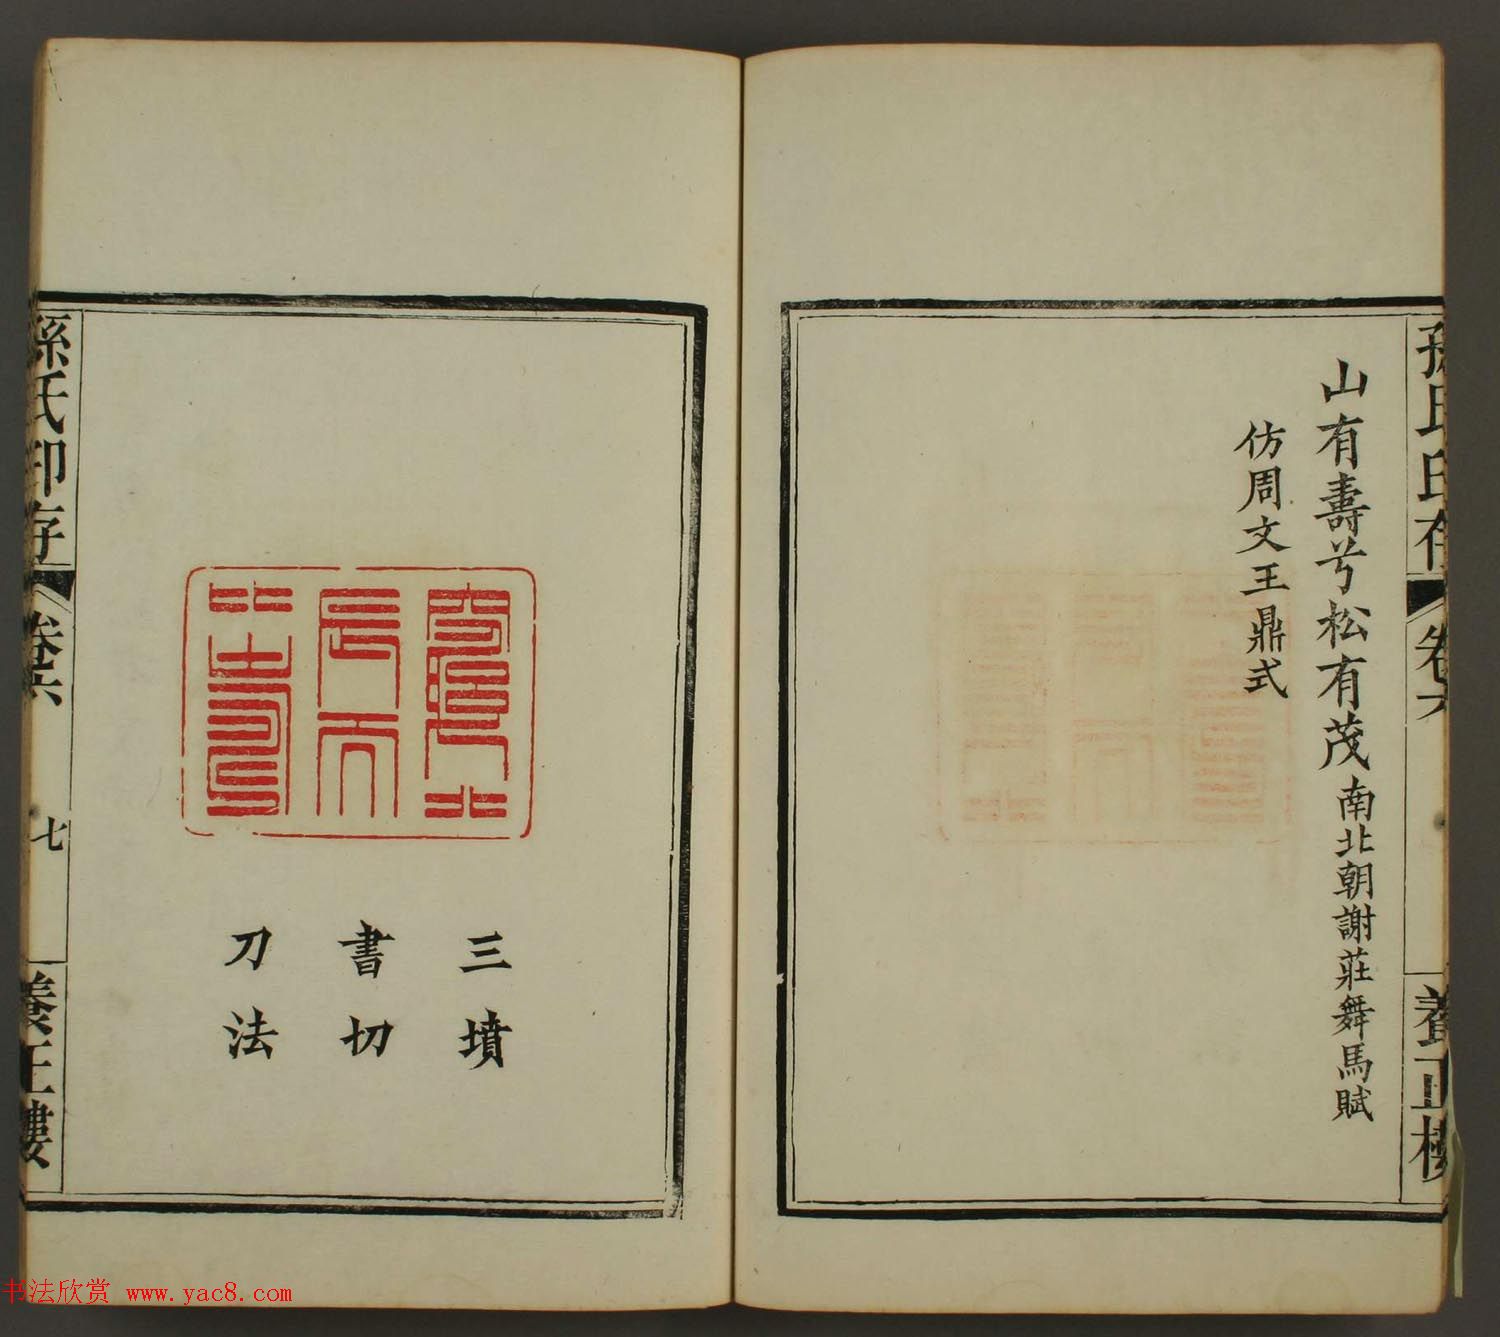 孫氏印存
卷六
養正樓
山有壽兮松有茂南北朝謝莊舞馬賦
仿周文王鼎式
三墳
書切
刀法
孫氏印存
卷六
七
養正樓
书法欣赏 www.yac8.com